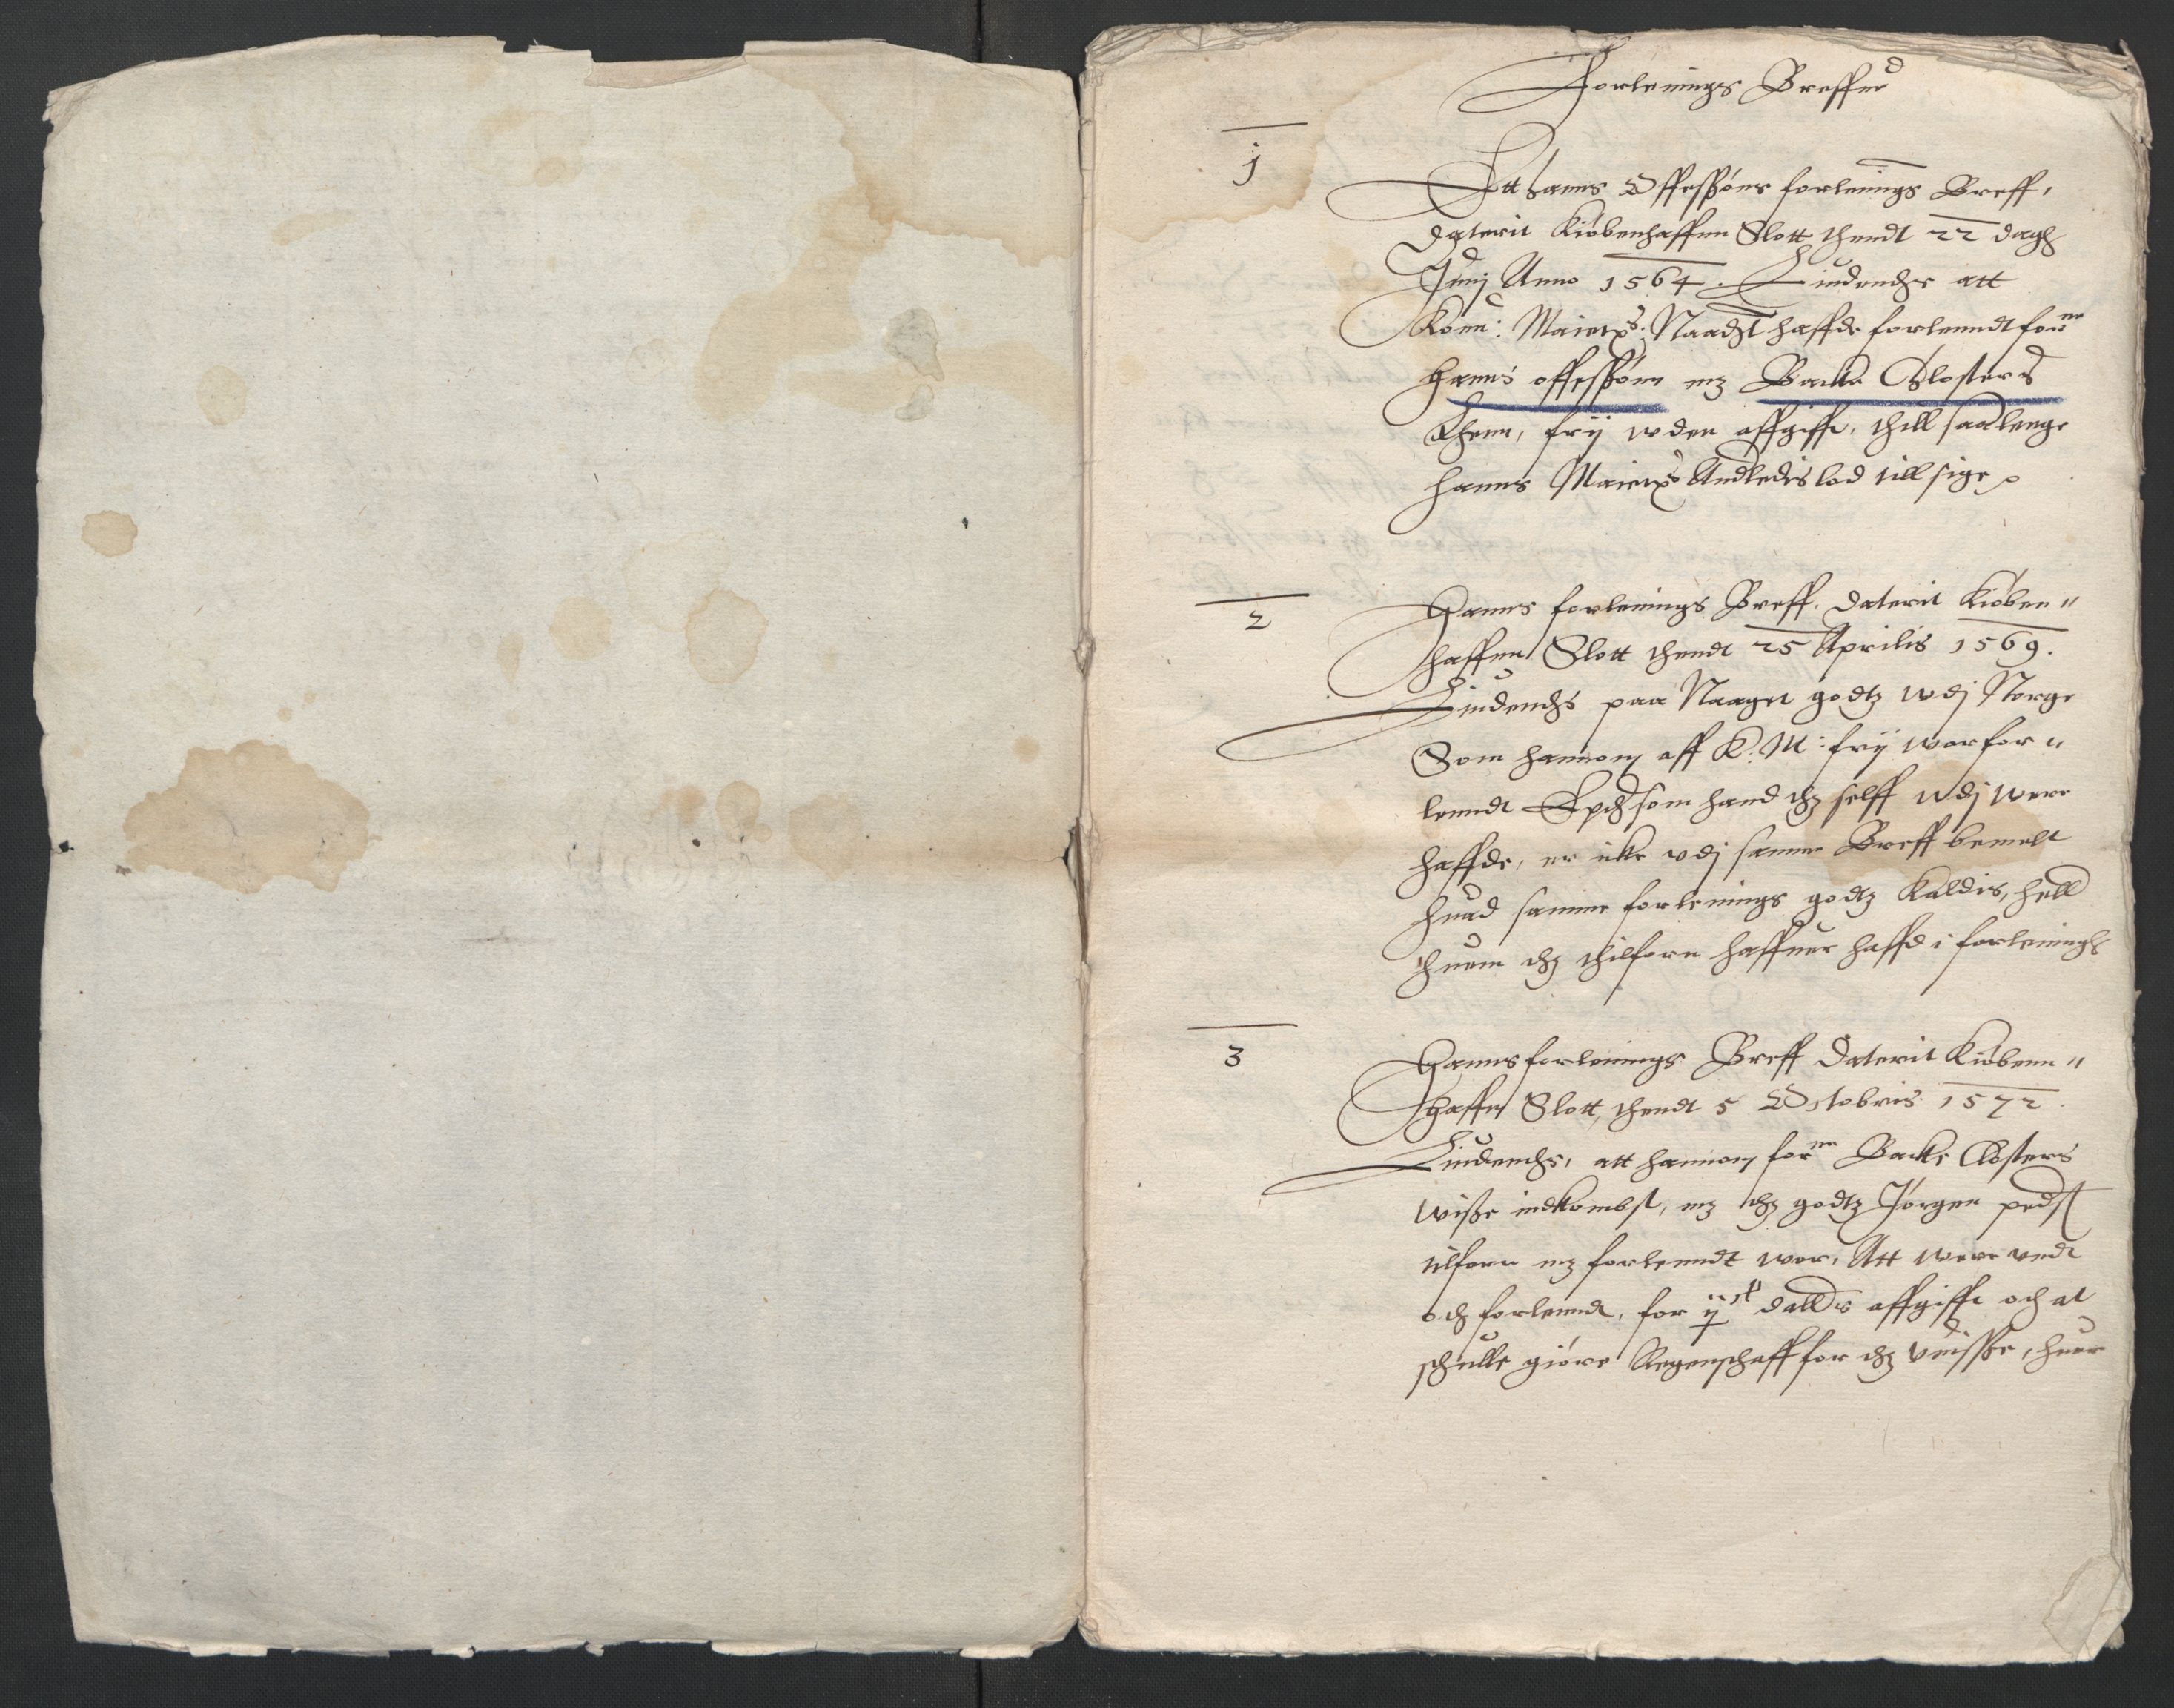 Forlenings Breffue
1
Ett hanns Offessøns forlenings Breff,
Daterit Kiøbenhaffnn Slott thendt 22 dagh
Junij Anno 1564. Liudendes att
Kon: Maietz: Naadst haffde forlenndt forne
Hanns offessønn mz Backe Closters
Lhenn, frij vden affgifft, thill saalenge
hanns Maietz Andledis lod tillsige
2
Hanns forlenings Breff, Daterit Kiøben"
haffnn Slott thendt 25 Aprilis 1569.
Liudendes paa Naaget godtz wdj Norge
Som hannom aff K: M: frij wor for"
lenndt som hand thz selff wdj were
haffde, er icke vdj samme Breff bemelt
huad samme forlenings godtz Kaldis, hell
huem thz thilforn haffuer hafft i forleningh
3
Hanns forlenings Breff Daterit Kiøbenn"
haffn Slott, thendt 5 Octobris 1572
Liudendes, att hannom forne Backe Closters
wisse indkombst, mz thz godtz Jørgen pedsß
tilforn mz forlenndt wor, Att were vndt
och forlenndt, for dalers affgifft och at
schulle giøre Regenschaff for thz vuisse, huer